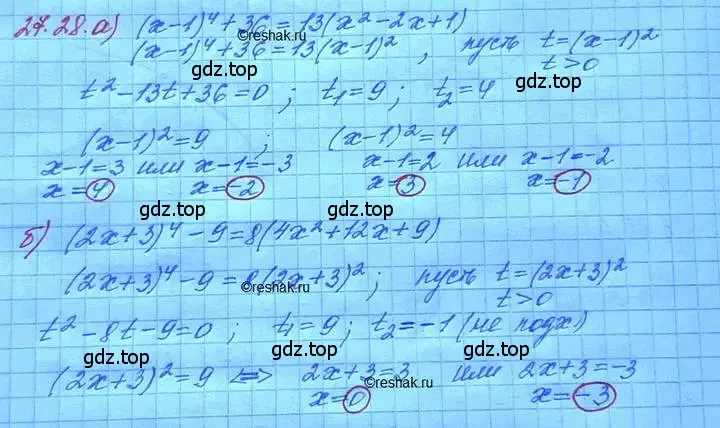 27.28.а) (x-1)⁴+36=13(x²-2x+1)
©reshak.ru
(x-1)⁴+36=13(x-1)², пусть t=(x-1)²
gdz.top gdz.top t>0
t²-13t+36=0; t₁=9; t₂=4
gdz.top
(x-1)²=9; (x-1)²=4
x-1=3 или x-1=-3 x-1=2 или x-1=-2
x=4 x=-2 x=3 x=-1
gdz.top gdz.top
б) (2x+3)⁴-9=8(4x²+12x+9)
gdz.top
(2x+3)⁴-9=8(2x+3)²; пусть t=(2x+3)²
©reshak.ru
t>0
gdz.top gdz.top
t²-8t-9=0; t₁=9; t₂=-1 (не подх)
gdz.top
(2x+3)²=9 ⟺ 2x+3=3 или 2x+3=-3
©reshak.ru
x=0 x=-3
gdz.top gdz.top